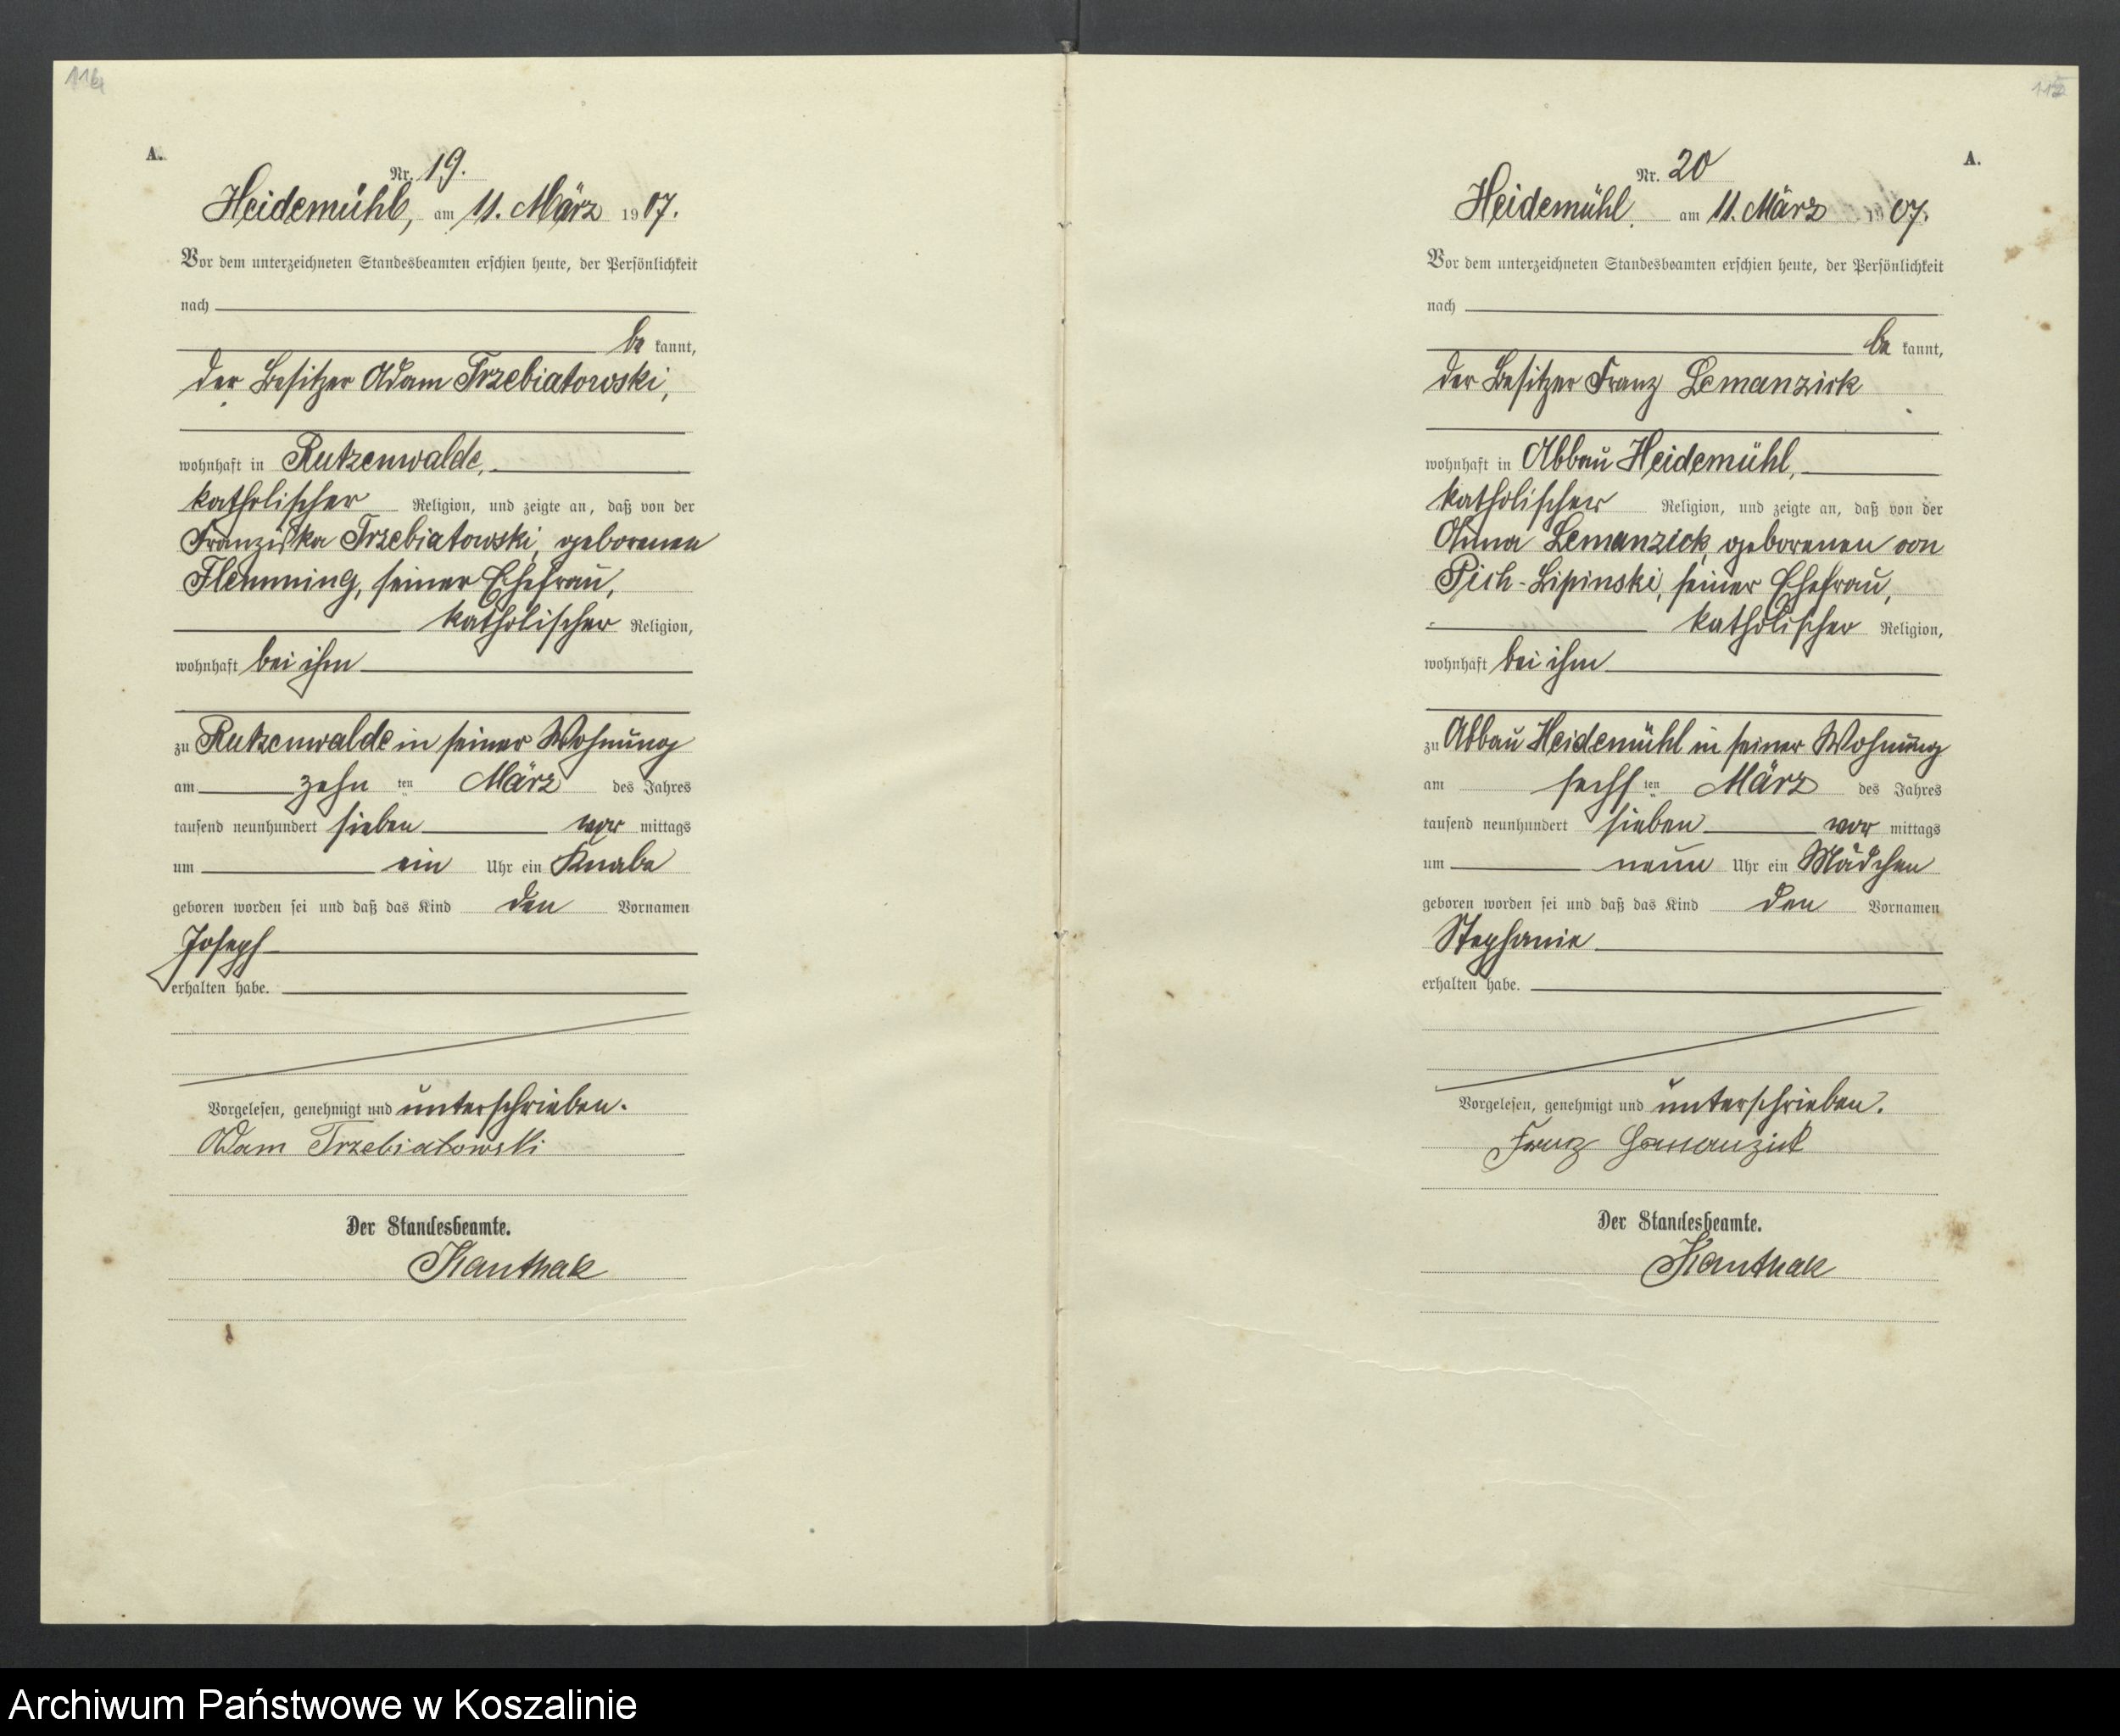 A.
Nr. 19.
Heidemühl, am 11. März 1907.
Vor dem unterzeichneten Standesbeamten erschien heute, der Persönlichkeit
nach
be kannt,
der Besitzer Adam Trzebiatowski,
wohnhaft in Rutzenwalde,
katholischer Religion, und zeigte an, daß von der
Franziska Trzebiatowski, geborenen
Flemming, seiner Ehefrau,
katholischer Religion,
wohnhaft bei ihm
zu Rutzenwalde in seiner Wohnung
am zehn ten März des Jahres
tausend neunhundert sieben vor mittags
um ein Uhr ein Knabe
geboren worden sei und daß das Kind den Vornamen
Joseph
erhalten habe.
Vorgelesen, genehmigt und unterschrieben.
Adam Trzebiatowski
Der Standesbeamte.
Kanthak
A.
Nr. 20
Heidemühl, am 11. März 1907.
Vor dem unterzeichneten Standesbeamten erschien heute, der Persönlichkeit
nach
be kannt,
der Besitzer Franz Lemanzick
wohnhaft in Abbau Heidemühl,
katholischer Religion, und zeigte an, daß von der
Anna Lemanzick, geborenen von
Pich-Lipinski, seiner Ehefrau,
katholischer Religion,
wohnhaft bei ihm
zu Abbau Heidemühl in seiner Wohnung
am sechs ten März des Jahres
tausend neunhundert sieben vor mittags
um neun Uhr ein Mädchen
geboren worden sei und daß das Kind den Vornamen
Stephanie
erhalten habe.
Vorgelesen, genehmigt und unterschrieben.
Franz Lemanzick
Der Standesbeamte.
Kanthak
Archiwum Państwowe w Koszalinie